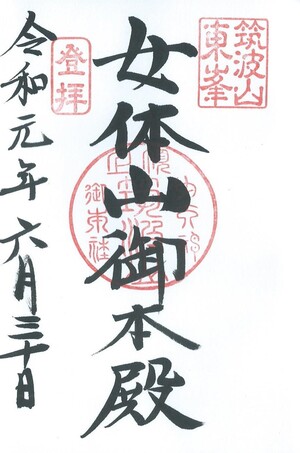 筑波山
東峯
女体山御本殿
登拝
令和元年六月三十日